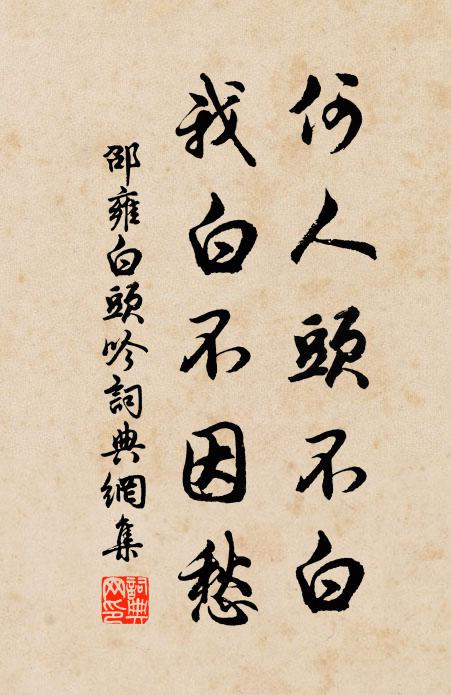 何人頭不白
我白不因愁
邵雍白頭吟詞典網集
詞典
网印